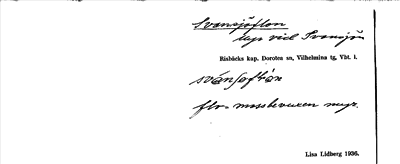 Svansjöflon
myr vid Svansjön
Risbäcks kap. Dorotea sn, Vilhelmina tg, Vbt. l.
flo = mossbevuxen myr.
Lisa Lidberg 1936.